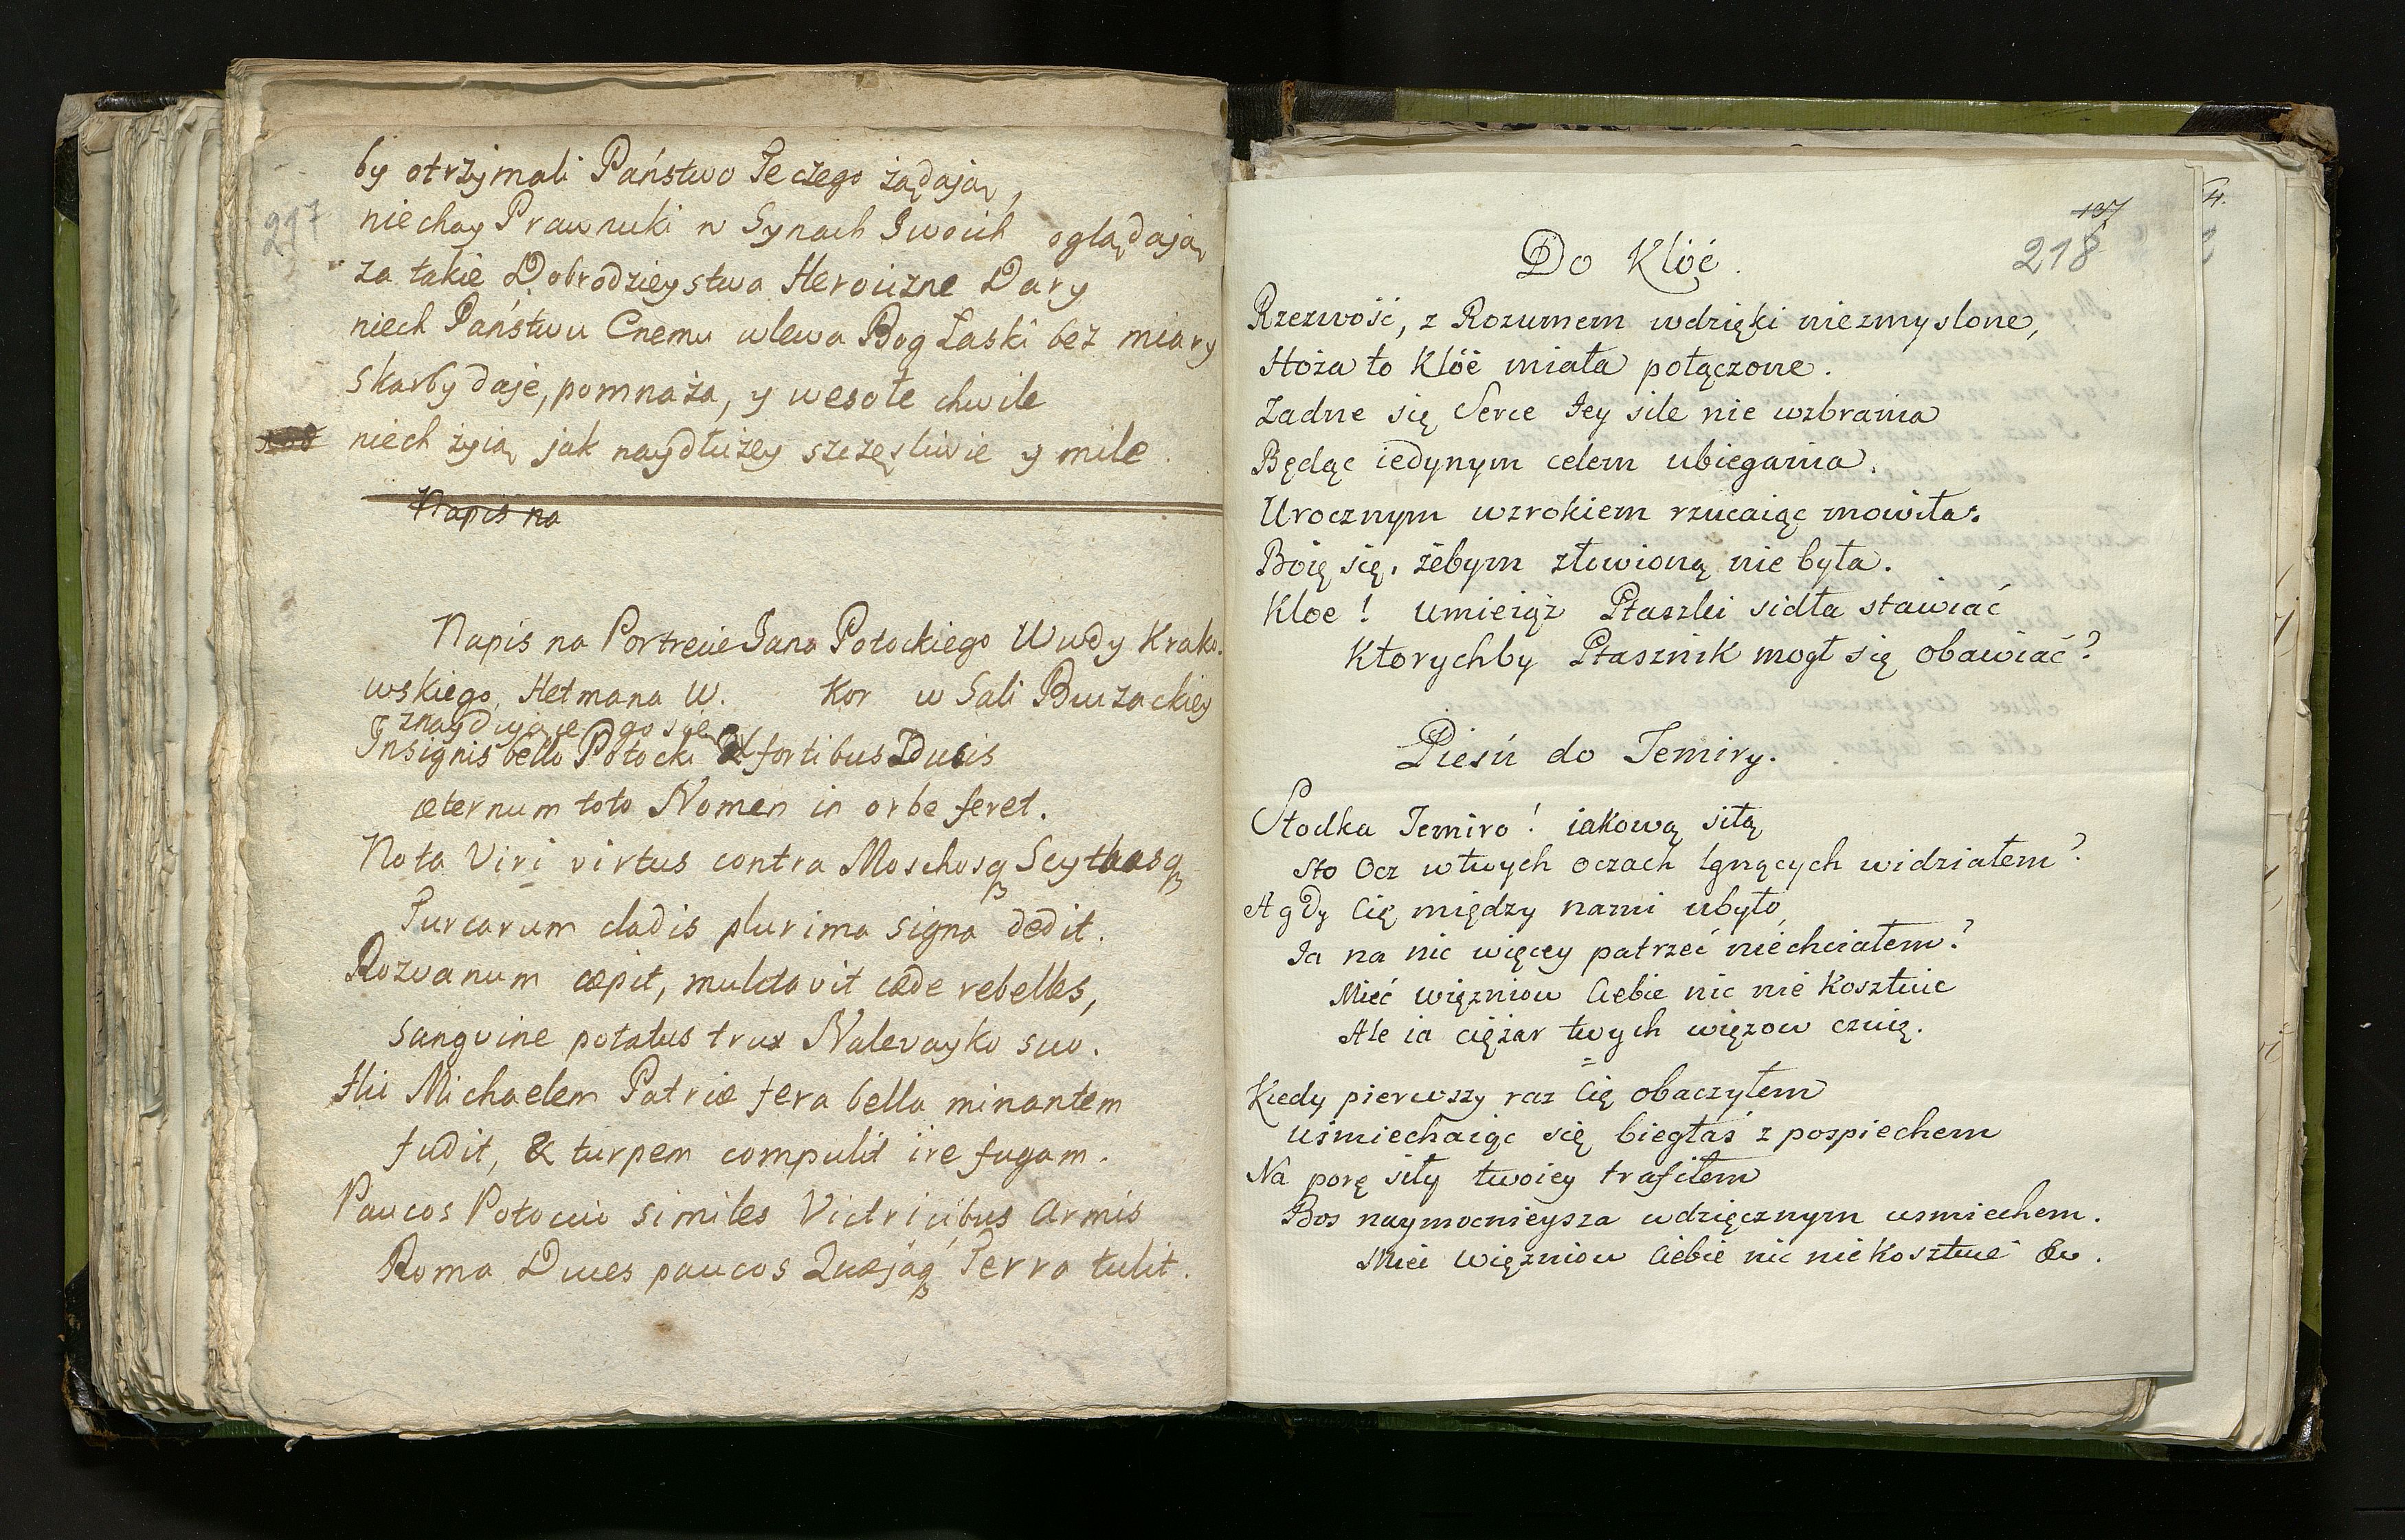 217
by otrzymali Państwo Te czego żądają,
niechay Prawnuki w Synach Swoich oglądają
za takie Dobrodzieystwa Heroiczne Dary
niech Państwu Cnemu wlewa Bog Łaski bez miary
skarby daje, pomnaża, y wesołe chwile
niech żyią jak naydłużey szczęsliwie y mile.
Napis na
Napis na Portrecie Jana Potockiego Wwdy Krako.
wskiego, Hetmana W. Kor w Sali Buczackiey
znaydującego się
Insignis bello Potocki & fortibus Ducis
æternum toto Nomen in orbe feret.
Nota Viri virtus contra Moschosq Scythasq
Turcarum cladis plurima signa dedit.
Rozvanum cæpit, mulctavit cæde rebelles,
sanguine potatus trux Nalevayko suo.
Hic Michaelem Patriæ fera bella minantem
fudit, & turpem compulit ire fugam.
Paucos Potocio similes Victricibus Armis
Roma Duces paucos Quæjaq Terra tulit.
137
218
Do Klöć.
Rzezwość, z Rozumem wdzięki niezmyslone,
Hoża to Klöe miała połączone.
Zadne się Serce Jey sile nie wzbrania
Będąc iedynym celem ubiegania.
Urocznym wzrokiem rzucaiąc mowiła:
Boię się, żebym złowioną nie była.
Kloe! umieiąż Ptaszki sidła stawiać
Ktorychby Ptasznik mogł się obawiać?
Piesń do Temiry.
Słodka Temiro! iakową siłą
Sto Ocz w twych oczach lgnących widziałem?
A gdy Cię między nami ubyło
Ja na nic więcey patrzeć niechciałem?
Mieć więzniow Ciebie nic nie kosztuie
Ale ia ciężar twych więzow czuię.
=
Kiedy pierwszy raz Cię obaczyłem
Uśmiechaiąc się biegłaś z pospiechem
Na porę siły twoiey trafiłem
Boś naymocnieysza wdzięcznym usmiechem.
Mieć więzniow Ciebie nic nie kosztuie &c.
4.